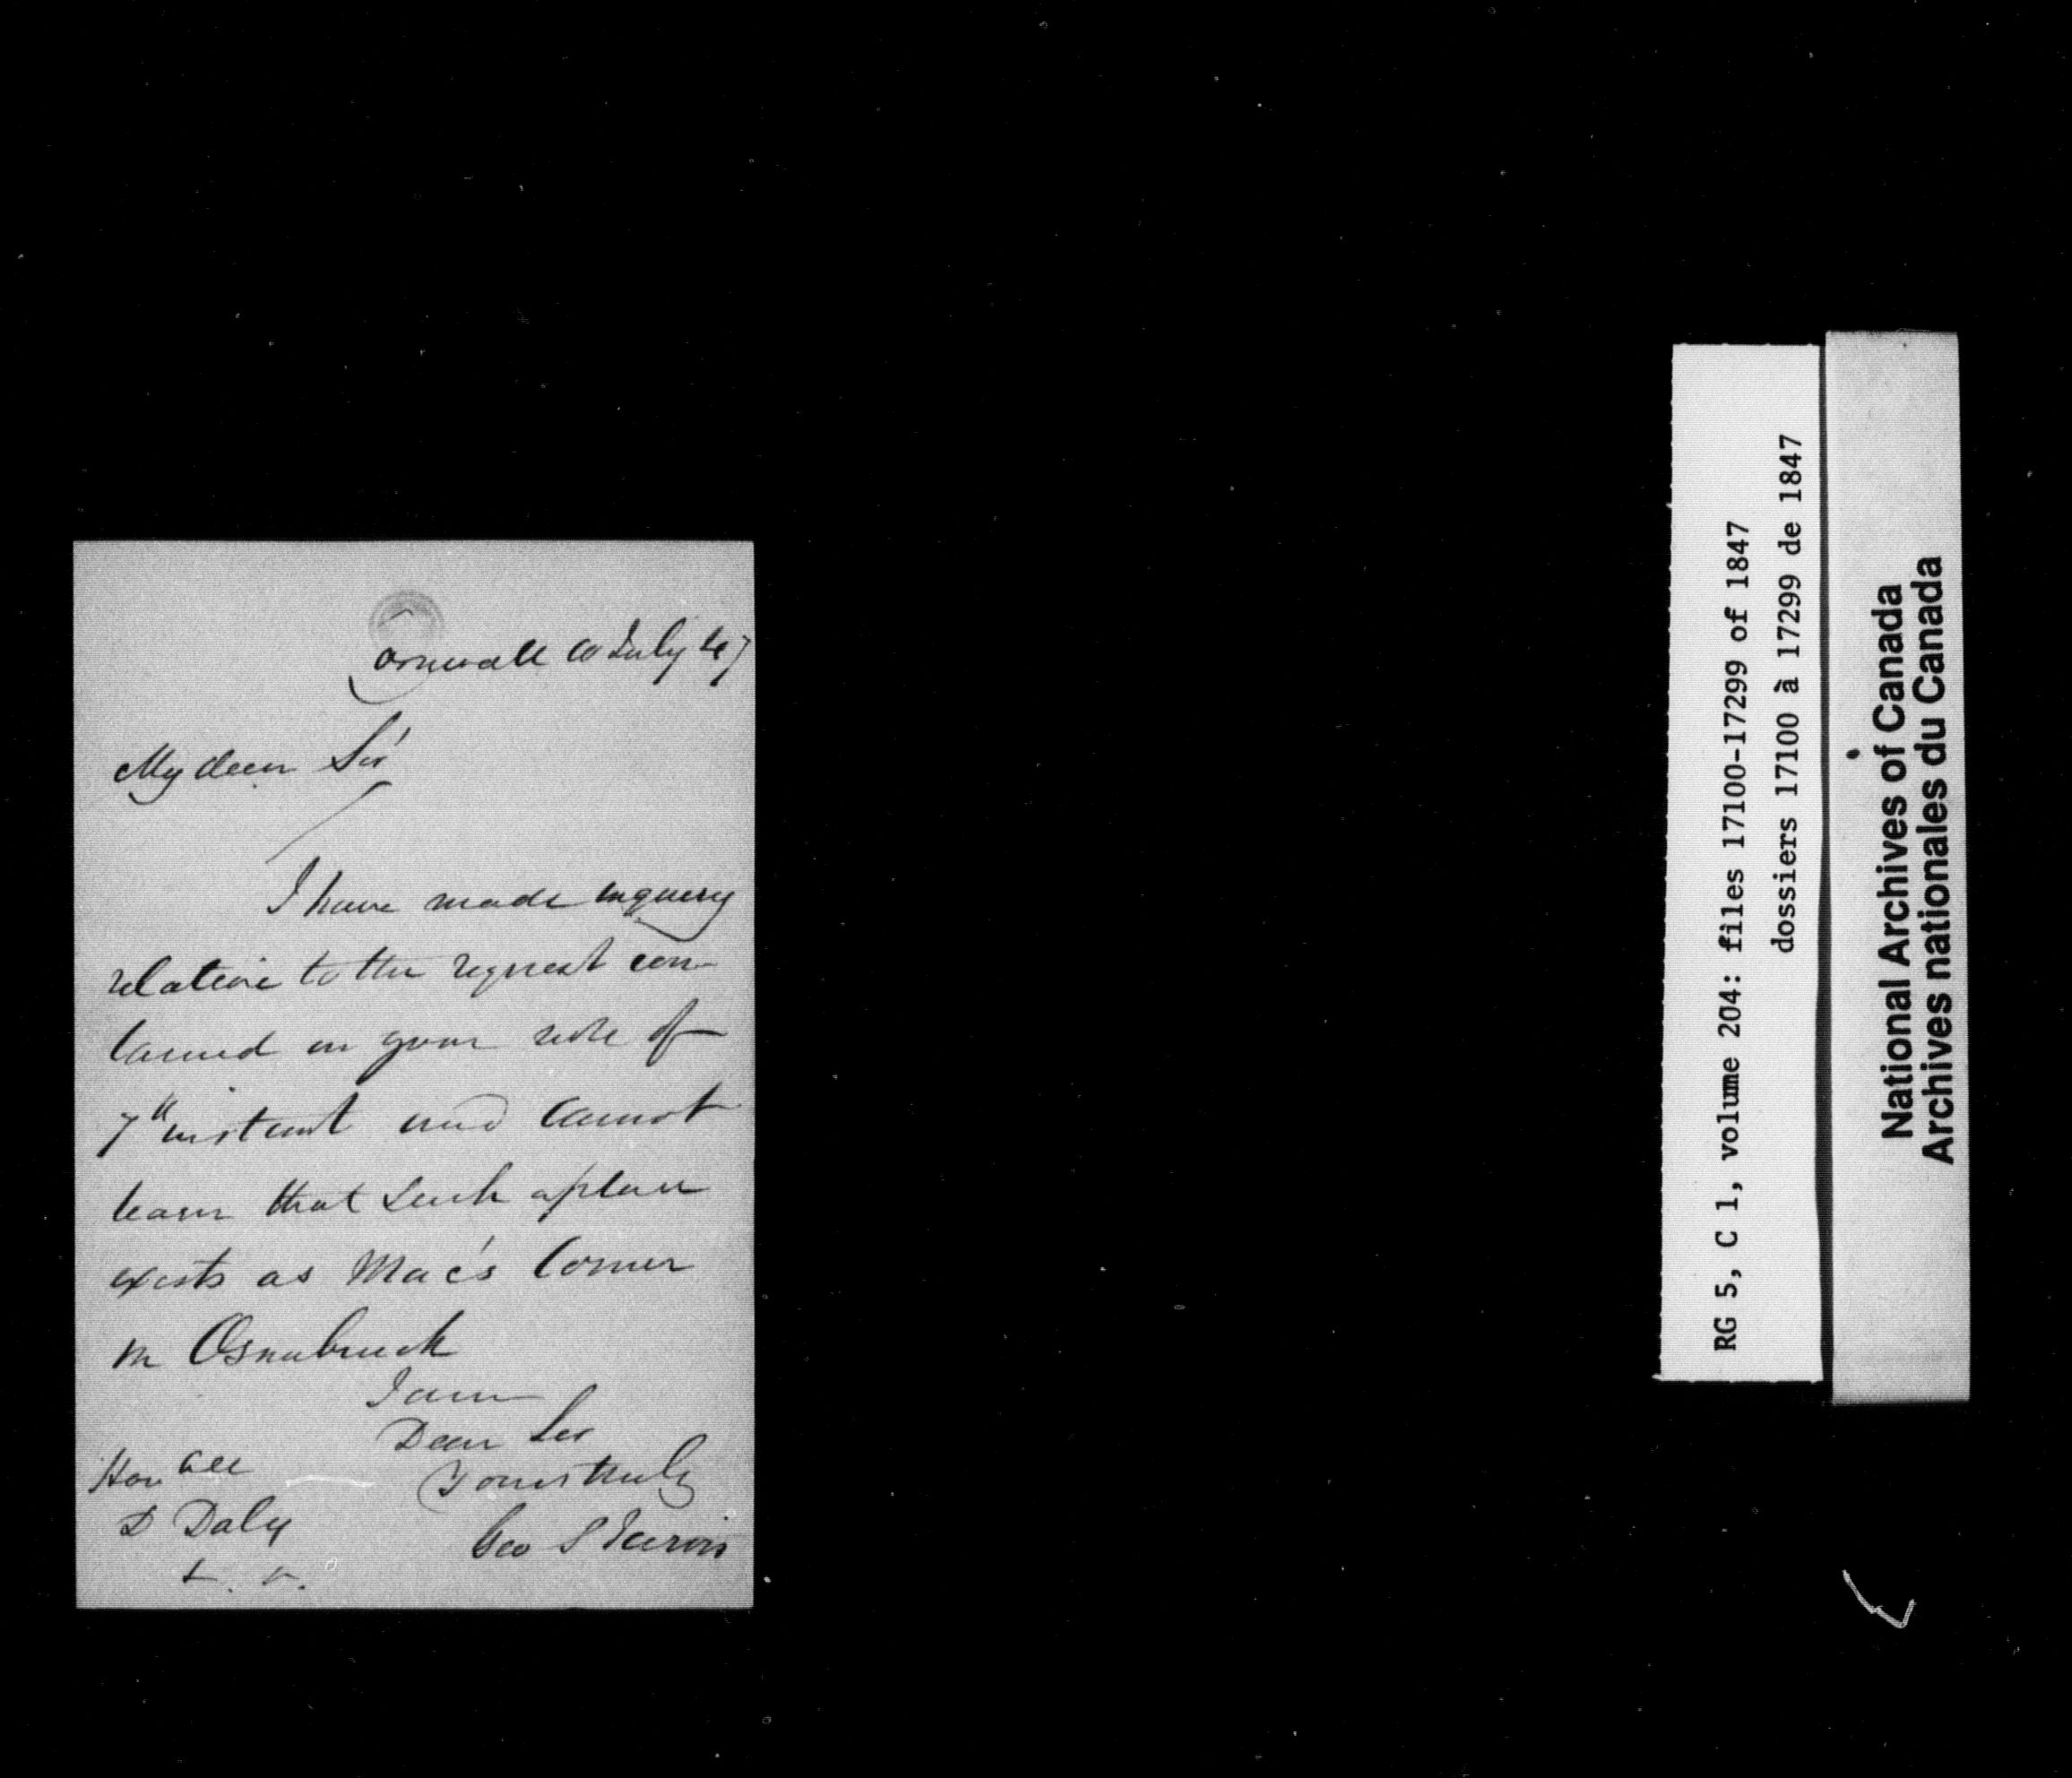 Cornwall 10 July 47
My dear Sir
I have made inquiry
relative to the request con-
tained in your note of
7th instant and cannot
learn that such a place
exists as Mac's Corner
in Osnabruck
I am
Dear Sir
Yours truly
Geo S Jarvis
Honble
D Daly
RG 5, C 1, volume 204: files 17100-17299 of 1847
dossiers 17100 à 17299 de 1847
National Archives of Canada
Archives nationales du Canada